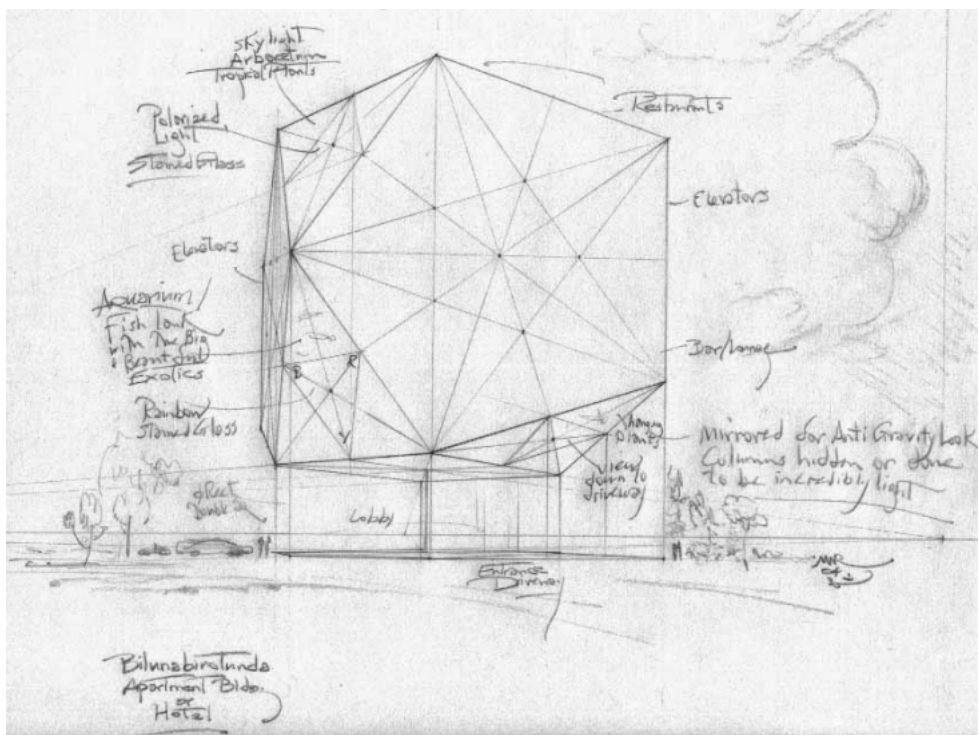 Skylight
Arboretum
Tropical Plants
Polarized
Light
Stained Glass
Restaurants
Elevators
Elevators
Aquarium
Fish
with The Big
Beautiful
Exotics
Bar/Lounge
B
R
V
Rainbow
Stained Glass
Hanging
plants
view
down to
driveway
Mirrored for Anti Gravity Look
Columns hidden or done
to be incredibly light
Lobby
Entrance
Bilunabirotunda
Apartment Bldg.
or
Hotel